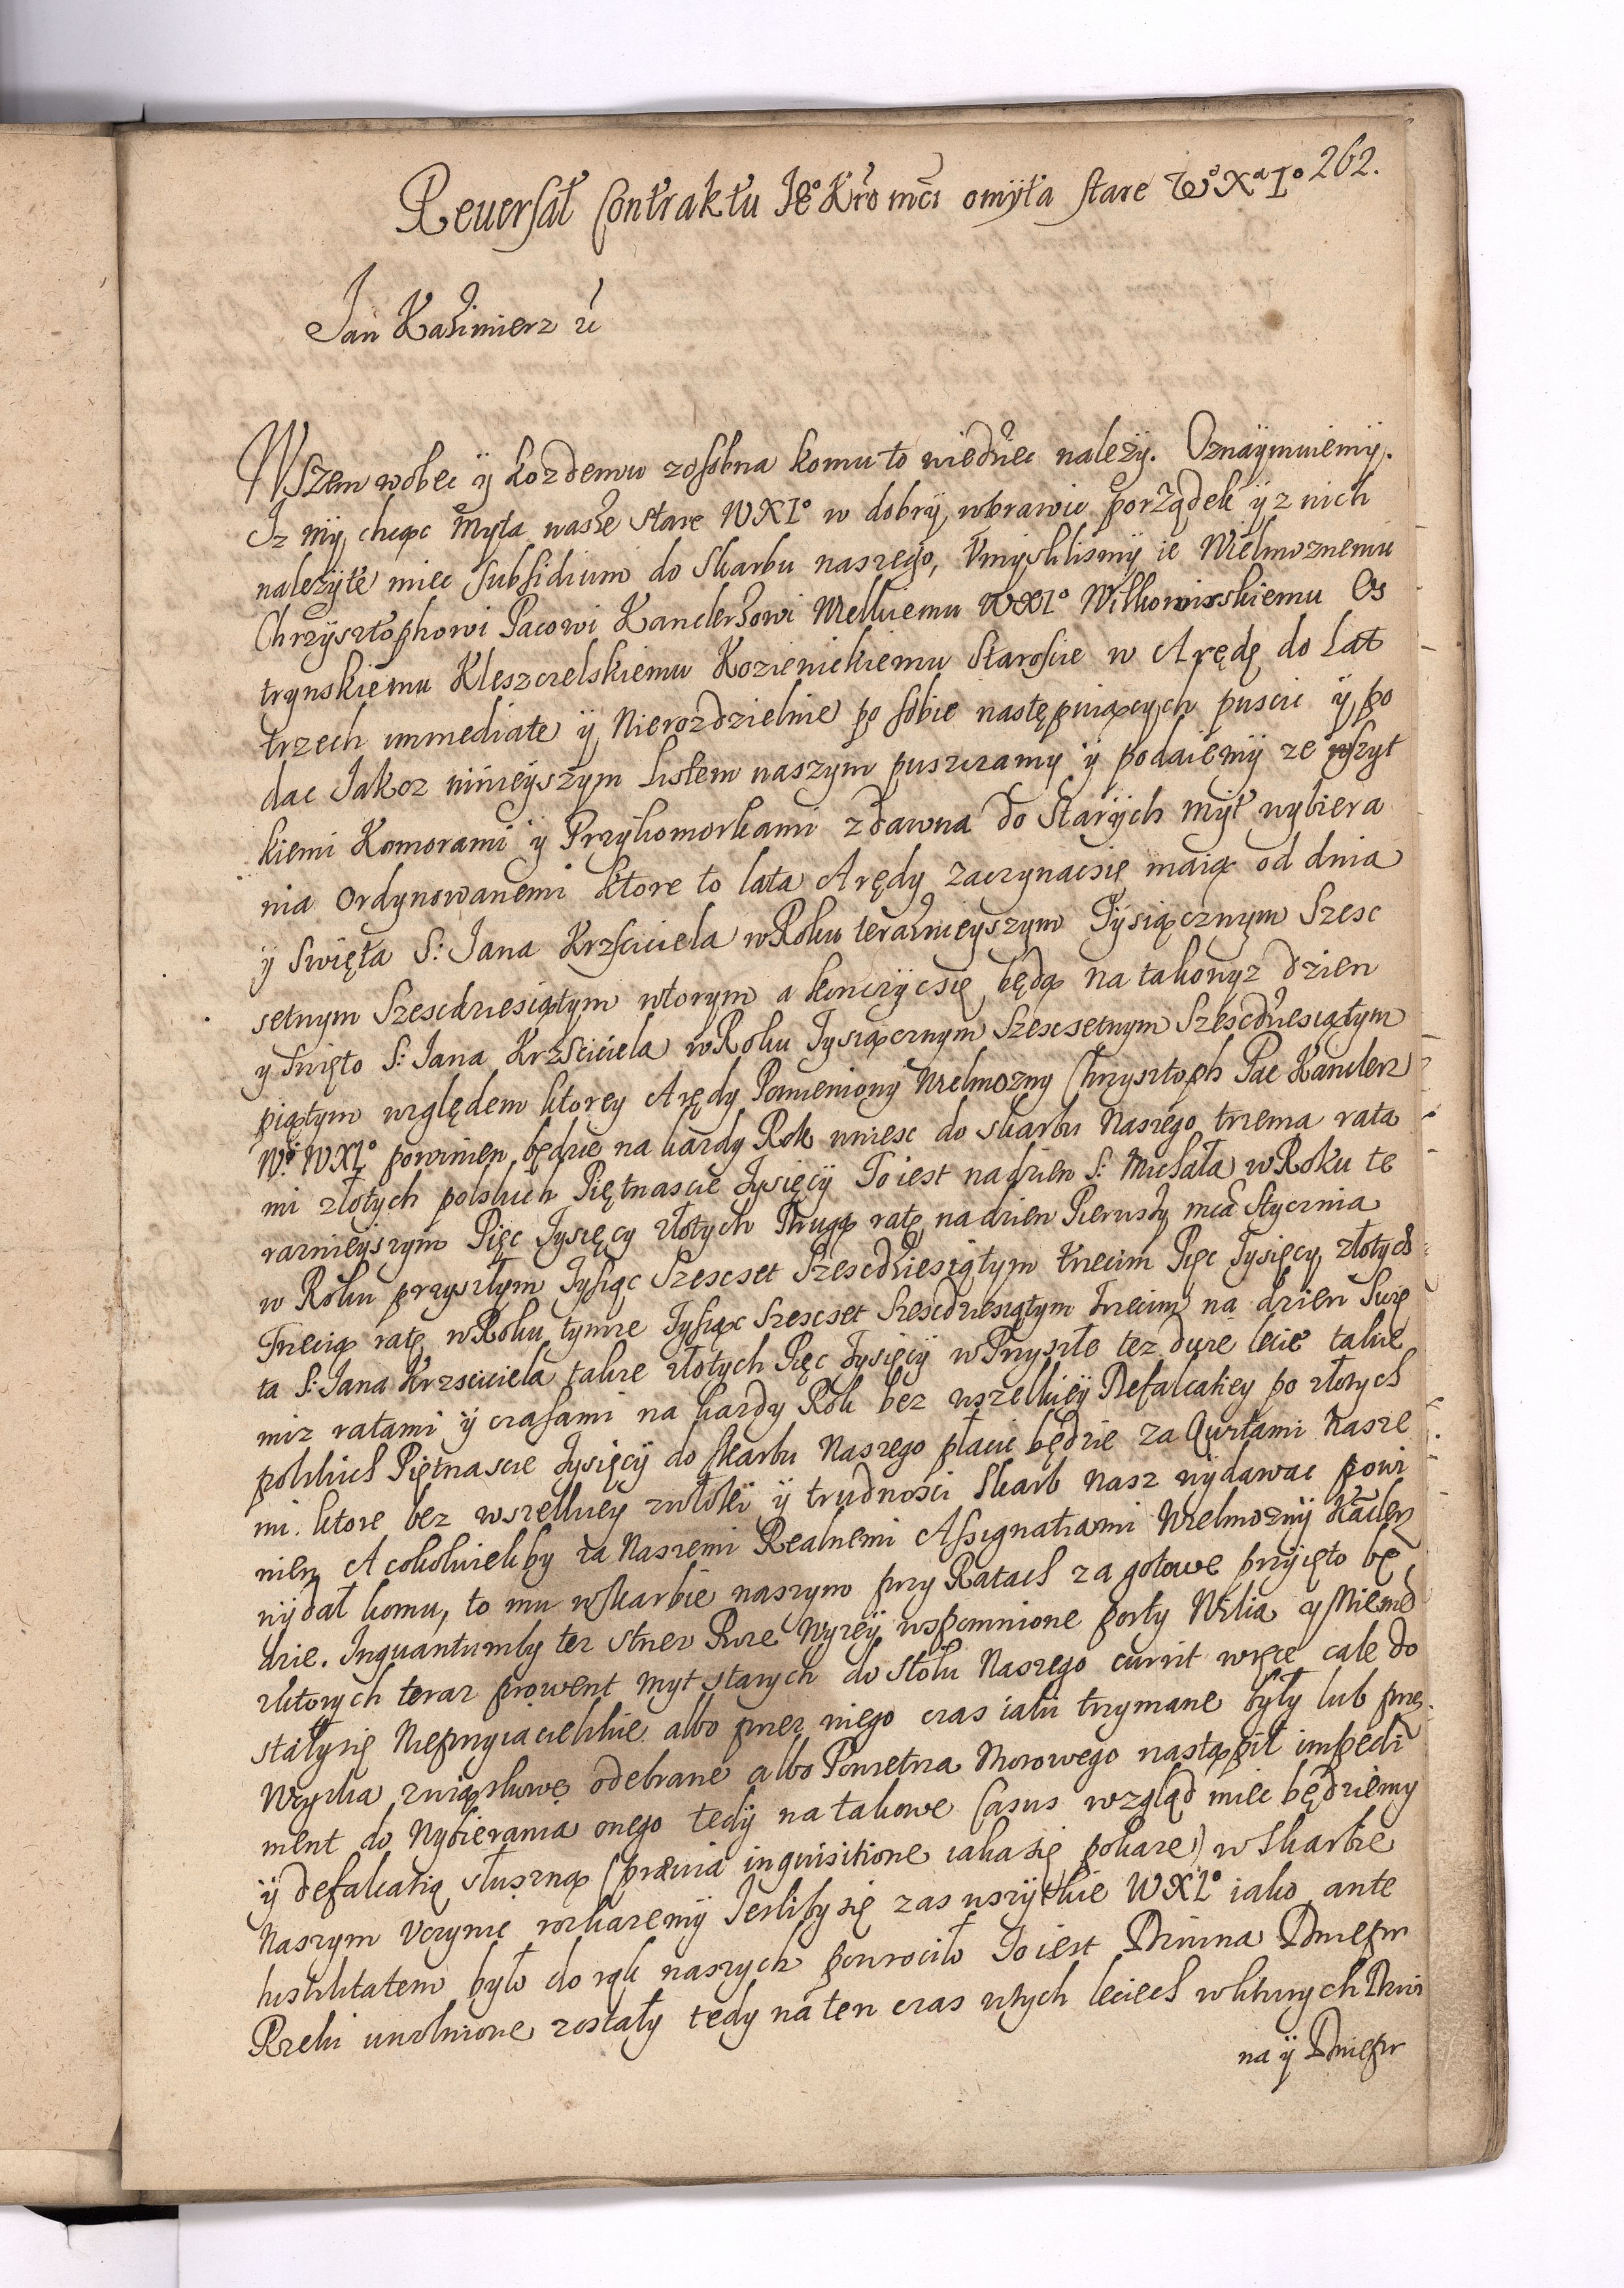 262.
Reuersał Contraktu Je° Kro mci o myta stare W° Xa L°
Jan Kazimierz ic
Wszem wobec ÿ kozdemu zosobna komu to wiedziec nalezÿ. Oznaÿmuiemÿ.
Iz mÿ chcąc Myta nasze stare WXL° w dobrÿ wprawic porządek ÿ z nich
nalezÿte miec subsidium do Skarbu naszego, Vmyslilismÿ ie Wielmoznemu
Chrzysztophowi Pacowi Kanclerzowi Wielkiemu WXL° Wilkomirskiemu Os
trynskiemu Kleszczelskiemu Kozienickiemu Staroscie w Arędę do Lat
trzech immediate ÿ Nierozdzielnie po sobie następuiących puscic ÿ po
dac Jakoz ninieÿszym Listem naszym puszczamy ÿ podaiemÿ ze wszyt
kiemi Komorami ÿ Przykomorkami zdawna do Starÿch Mÿt wybiera
nia Ordynowanemi ktore to lata Arędy zaczynac się maią od dnia
ÿ Swięta S: Jana Krzsciciela w Roku teraznieyszym Tysiącznym Szesc
setnym Szescdziesiątym wtorym a konczÿc się będą na takowyz dzien
y Swięto S: Jana Krzsciciela w Roku Tysiącznym Szescsetnym Szescdziesiątym
piątym względem ktorey Arędy Pomieniony Wielmozny Chrzysztoph Pac Kanclerz
W° WXL° powinien będzie na kazdy Rok wniesc do skarbu Naszego trzema rata
mi złotych polskich Piętnascie Tysięcÿ To iest na dzien S: Michała w Roku te
raznieyszym Pięc Tysięcy złotych Drugą ratę na dzien Pierwszy mca Stycznia
w Roku przyszłym Tysiąc Szescset Szescdziesiątym trzecim Pięc Tysięcy złotych
Trzecią ratę w Roku tymze Tysiąc Szescset Szescdziesiątym Trzecim na dzien Swię
ta S: Jana Krzsciciela takze złotych Pięc Tysięcÿ w Przyszłe tez dwie lecie takie
miz ratami ÿ czasami na kazdy Rok bez wszelkieÿ Defalcatiey po złotych
polskich Piętnascie Tysięcÿ do skarbu Naszego płacic będzie za Qwitami Nasze
mi. ktore bez wszelkiey zwłokÿ ÿ trudnosci Skarb nasz wÿdawac powi
nien A cokolwiekby za Naszemi Realnemi Assignatiami Wielmoznÿ Kaclerz
wÿdał komu, to mu w skarbie naszym przy Ratach za gotowe przÿięto bę
dzie. Inquantumby tez Wyzeÿ wspomnione porty Wilia y Niemen
z ktorych teraz prowent myt starych do stołu Naszego currit wręce cale do
stały się Nieprzyiacielskie albo przez niego czas iaki trzymane były lub przez
Woyska związkowe odebrane albo Powietrza Morowego nastąpił impedi
ment do Wybierania onego tedÿ na takowe Casus wzgląd miec będziemy
ÿ defalcatią słuszną (praeuia inquisitione iaka się pokaze) w Skarbie
Naszym Vczynic rozkazemÿ Jesliby się zas wszÿtkie WXL° iako ante
hostilitatem było do rąk naszych powrociło To iest Dzwina Dniepr
Rzeki uwolnione zostały tedy na ten czas w tych leciech w ktorych Dzwi
na ÿ Dniepr